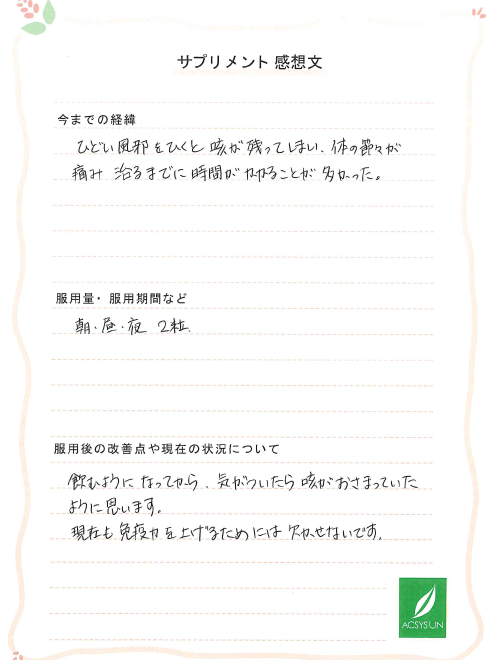 サプリメント 感想文
今までの経緯
ひどい風邪をひくと 咳が残ってしまい、体の節々が
痛み 治るまでに時間がかかることが多かった。
服用量・服用期間など
朝・昼・夜 2粒
服用後の改善点や現在の状況について
飲むようになってから、気がついたら咳がおさまっていた
ように思います。
現在も免疫力を上げるためには欠かせないです。
ACSYSUN